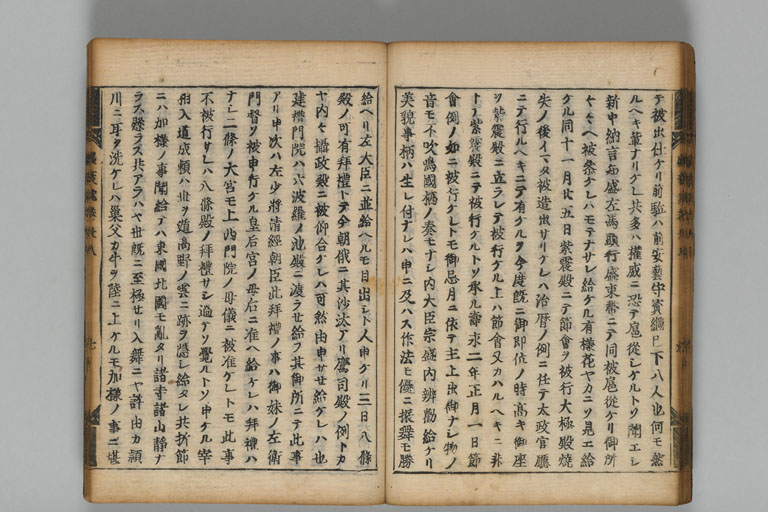 テ被出仕ケリ前駈ハ前安藝守實綱已下八人也何モ然
ルヘキ輩ナリケレ共多ハ權威ニ恐テ扈從シケルトソ聞エシ
新中納言知盛左馬頭行盛束帶ニテ同被扈從ケリ御所
ヤ々ヘ被參ナレハモテナサレ給ケル有樣花ヤカニソ見エ給
ケル同十一月廿五日紫震殿ニテ節會ヲ被行大極殿燒
失ノ後イマタ被造出サリケレハ治曆ノ例ニ任テ太政官廳
ニテ行ルヘキニテ有ケルヲ今度既ニ御即位ノ時高キ御座
ヲ紫震殿ニ立ラレテ被行ケル上ハ節會又カハルヘキニ非
トテ紫震殿ニテ被行ケルトソ承ル壽永二年正月一日節
會例ノ如ニ被行ケレトモ御忌月ニ依テ主上出御ナシ物ノ
音モ不吹鳴國栖ノ奏モナシ内大臣宗盛内辨勤給ケリ
美貌事柄ハ生レ付ナレハ申ニ及ハス作法モ優ニ振舞モ勝
給ヘリ左大臣ニ並給ヘルモ目出シト人申ケリ三日八條
殿ノ可有拜禮トテ今朝俄ニ其沙汰アリ鷹司殿ノ例トカ
ヤ内々攝政殿ニ被仰合ケレハ可然由申サセ給ケレハ也
建禮門院ハ六波羅ノ池殿ニ渡ラセ給フ其御所ニテ此事
アリ申次ハ左少將清經朝臣此拜禮ノ事ハ御妹ノ左衛
門督ソ被申行ケル皇后宮ノ母后ニ准ヘ給ケレハ拜禮ハ
ナシ二條ノ大宮モ上西門院ノ母儀ニ被准ケレトモ此事
不被行サレハ八條殿ノ拜禮サシ過テソ覺ルトソ申ケル宰
相入道成頼ハ世ヲ遁高野ノ雲ニ跡ヲ隱シ給タレ共折節
ニハ加樣ノ事聞給テハ東國北國モ亂タリ諸寺諸山靜ナ
ラス懸ラス共アラハヤ世既ニ至極セリ入舞ニヤ許由カ頴
川ニ耳ヲ洗ケレハ巢父カ牛ヲ陸ニ上ケルモ加樣ノ事ニ堪